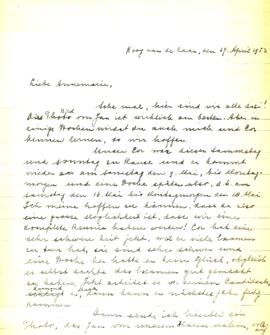 Koog aan de Zaan, den 29. April 1953
Liebe Annemarie,
Sehe mal, hier sind wir alle drei!
Das Photo von Jan ist wirklich am besten. Aber in
einige Wochen wirdst du auch mich und Cor
kennen lernen, so wir hoffen.
Unser Cor war diesen Samstag
und Sonntag zu Hause und er kommt
wieder am Samstag den 9. Mai, bis Montagmor-
gen und eine Woche später also, d.h. am
Samstag den 16. Mai bis Montagmorgen den 18. Mai
Ich meine hoffen zu können, dass da also
eine grosse Möglichkeit ist, dass wir eine
komplete Reunion haben werden! Cor hat eine
sehr schwere Zeit jetzt, weil er viel Examen
zu tun hat, die sind sehr schwer und
eine Woche her hatte er kein Glück, obgleich
er selbst dachte das Examen gut gemacht
zu haben. Jetzt arbeitet er an seinem Candidats-
, dann kann er nächstes Jahr fertig
kommen
Dann sende ich hierbei ein
Photo, das Jan von unserem Hause nahm, wo